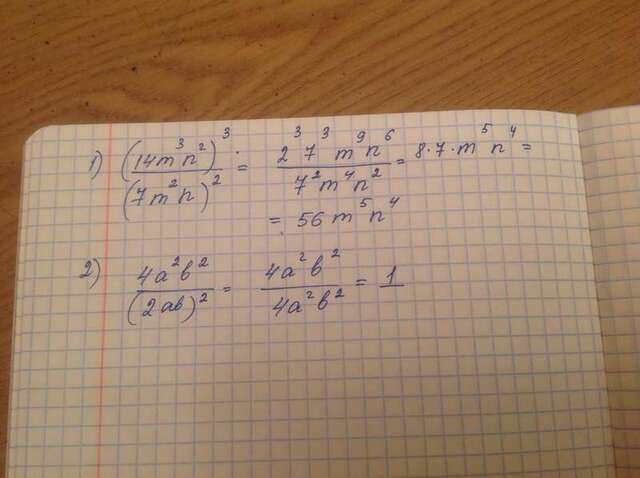 1) (14m³n²)³ / (7m²n)² = 2³7³m⁹n⁶ / 7²m⁴n² = 8·7·m⁵n⁴ =
= 56m⁵n⁴
2) 4a²b² / (2ab)² = 4a²b² / 4a²b² = 1